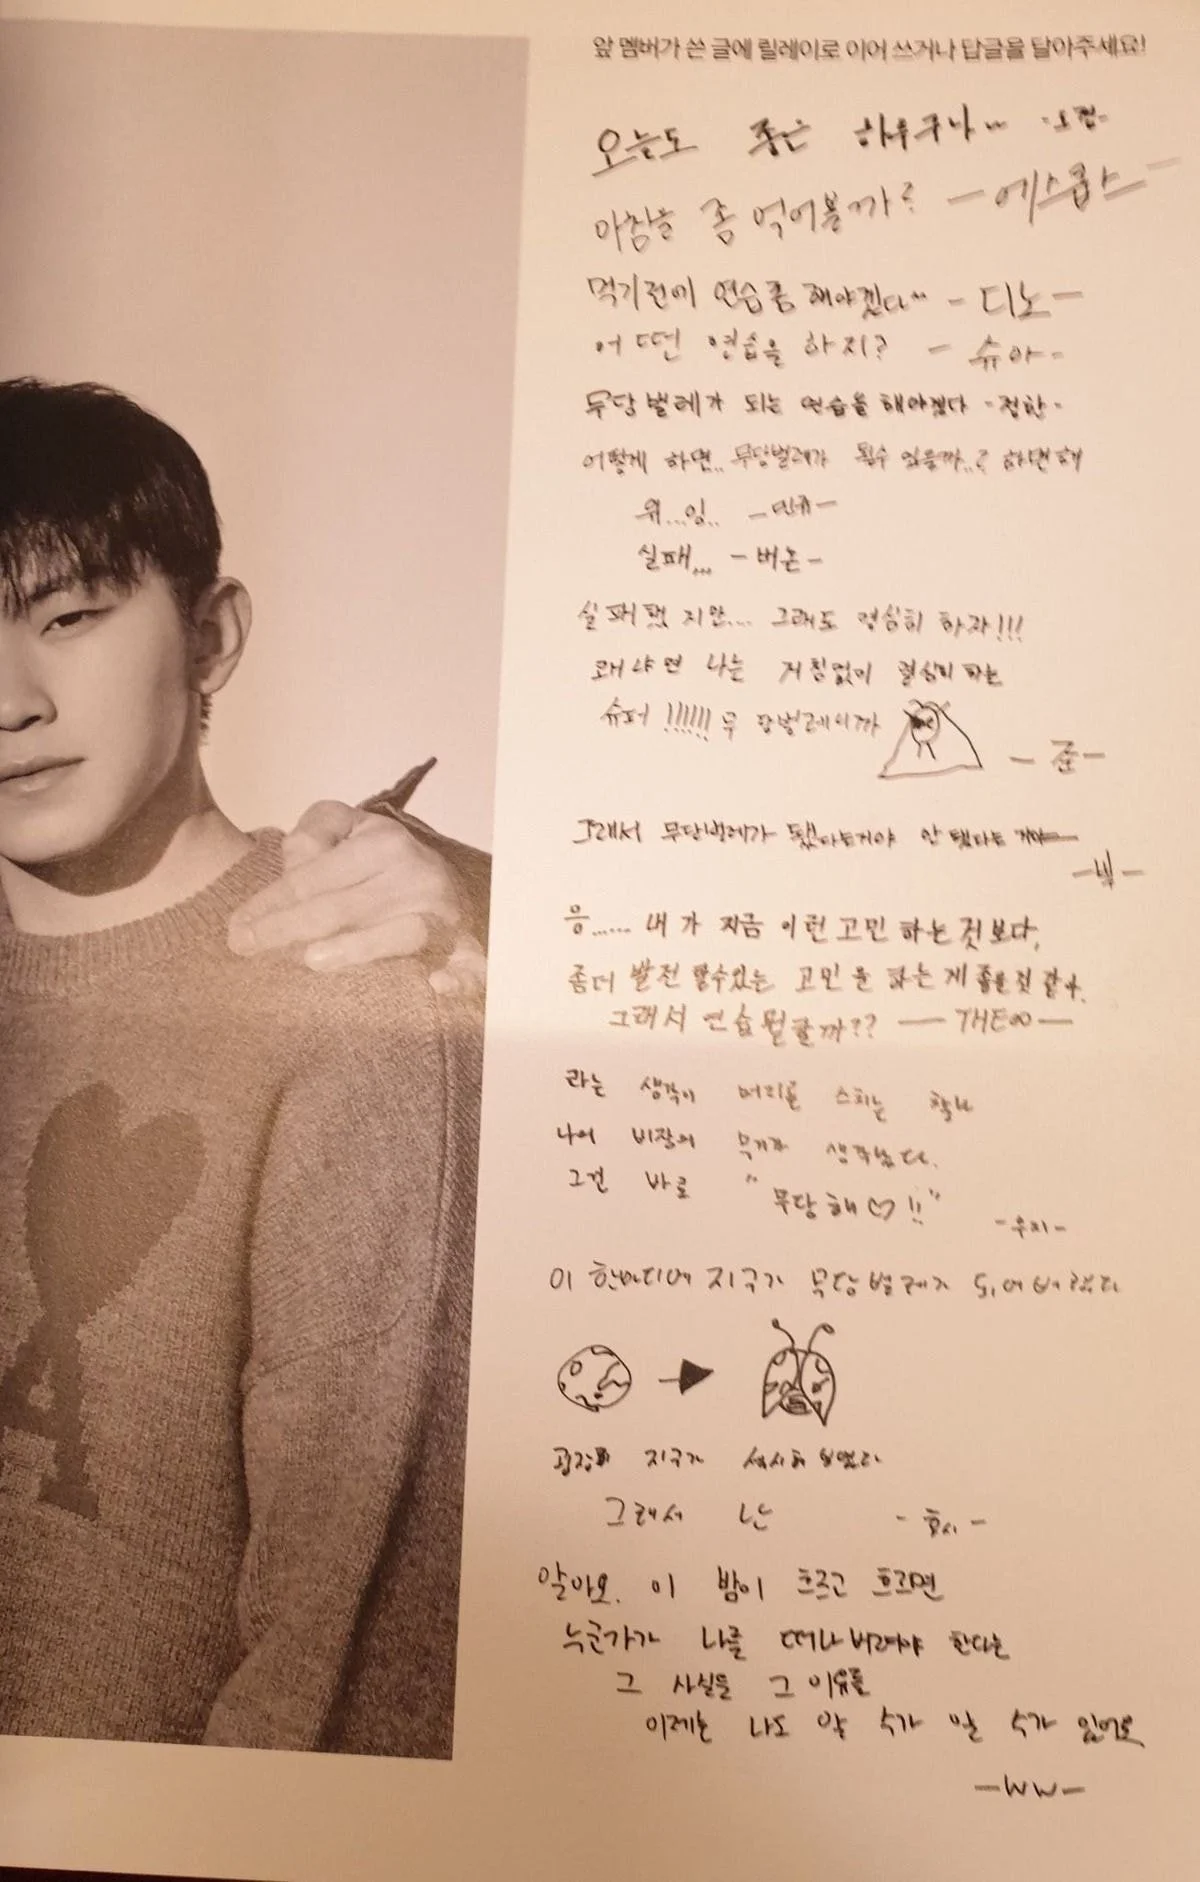 앞 멤버가 쓴 글에 릴레이로 이어 쓰거나 답글을 달아주세요!
오늘도 좋은 하루구나~ -도겸-
아침을 좀 먹어볼까? -에스쿱스-
먹기전에 연습좀 해야겠다~ -디노-
어떤 연습을 하지? -슈아-
무당벌레가 되는 연습을 해야겠다 -정한-
어떻게 하면.. 무당벌레가 될수 있을까..? 하면 해
위...잉.. -민규-
실패,,, -버논-
실패했지만... 그래도 열심히 하자!!!
왜냐면 나는 거침없이 열심히 하는
슈퍼 !!!!!! 무당벌레이니까
-준-
그래서 무당벌레가 됐다는거야 안 됐다는 거야
응...... 내가 지금 이런 고민 하는 것보다,
좀더 발전 할수있는 고민을 하는 게 좋을 것 같아.
그래서 연습 뭘할까?? - THE8 -
라는 생각이 머리를 스치는 찰나
나의 비장의 무기가 생각났다.
그건 바로 "무당해♡!!"
-우지-
이 한마디에 지구가 무당벌레가 되어버렸다
굉장히 지구가 섹시해 보였다
그래서 난 -호시-
알아요. 이 밤이 흐르고 흐르면
누군가가 나를 떠나버려야 한다는
그 사실을 그 이유를
이제는 나도 알 수가 알 수가 있어요
-WW-